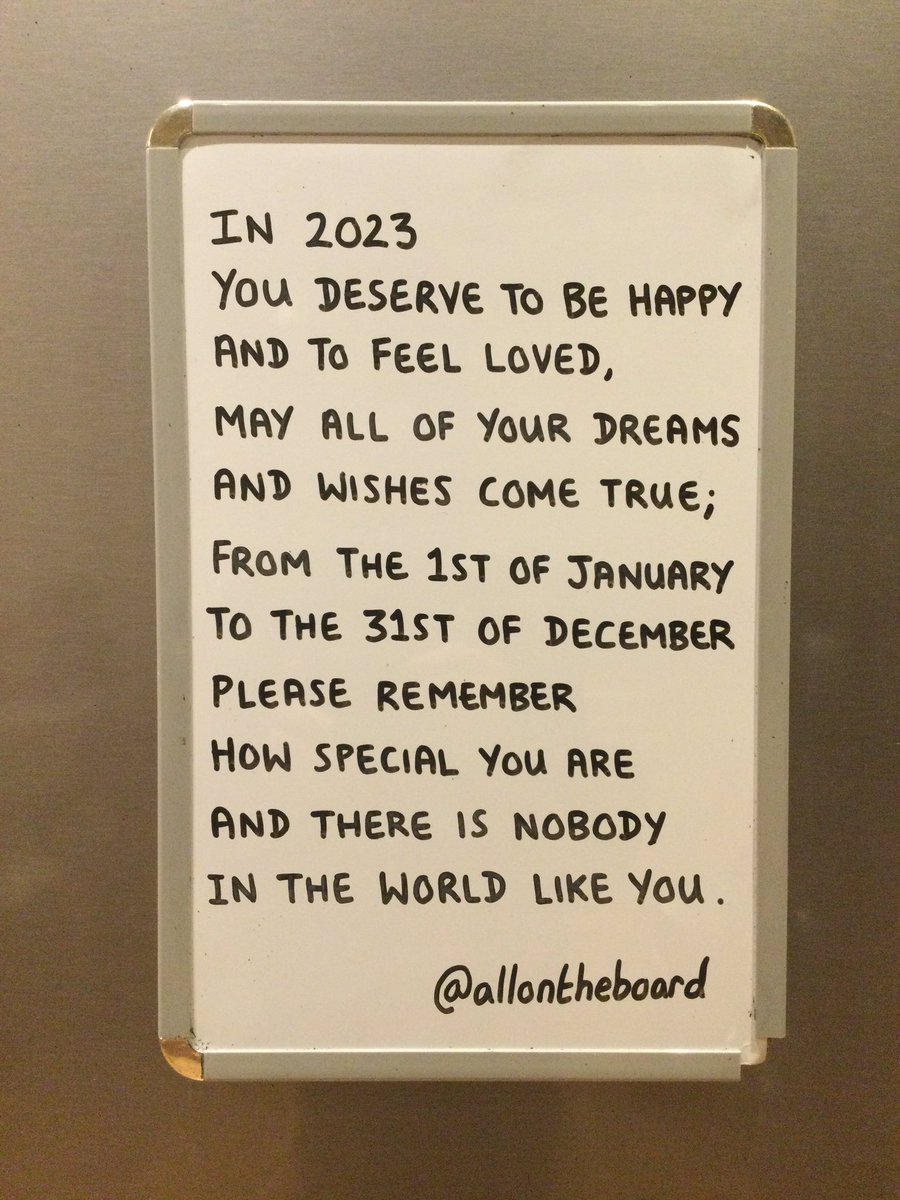 IN 2023
YOU DESERVE TO BE HAPPY
AND TO FEEL LOVED,
MAY ALL OF YOUR DREAMS
AND WISHES COME TRUE;
FROM THE 1ST OF JANUARY
TO THE 31ST OF DECEMBER
PLEASE REMEMBER
HOW SPECIAL YOU ARE
AND THERE IS NOBODY
IN THE WORLD LIKE YOU.
@allontheboard